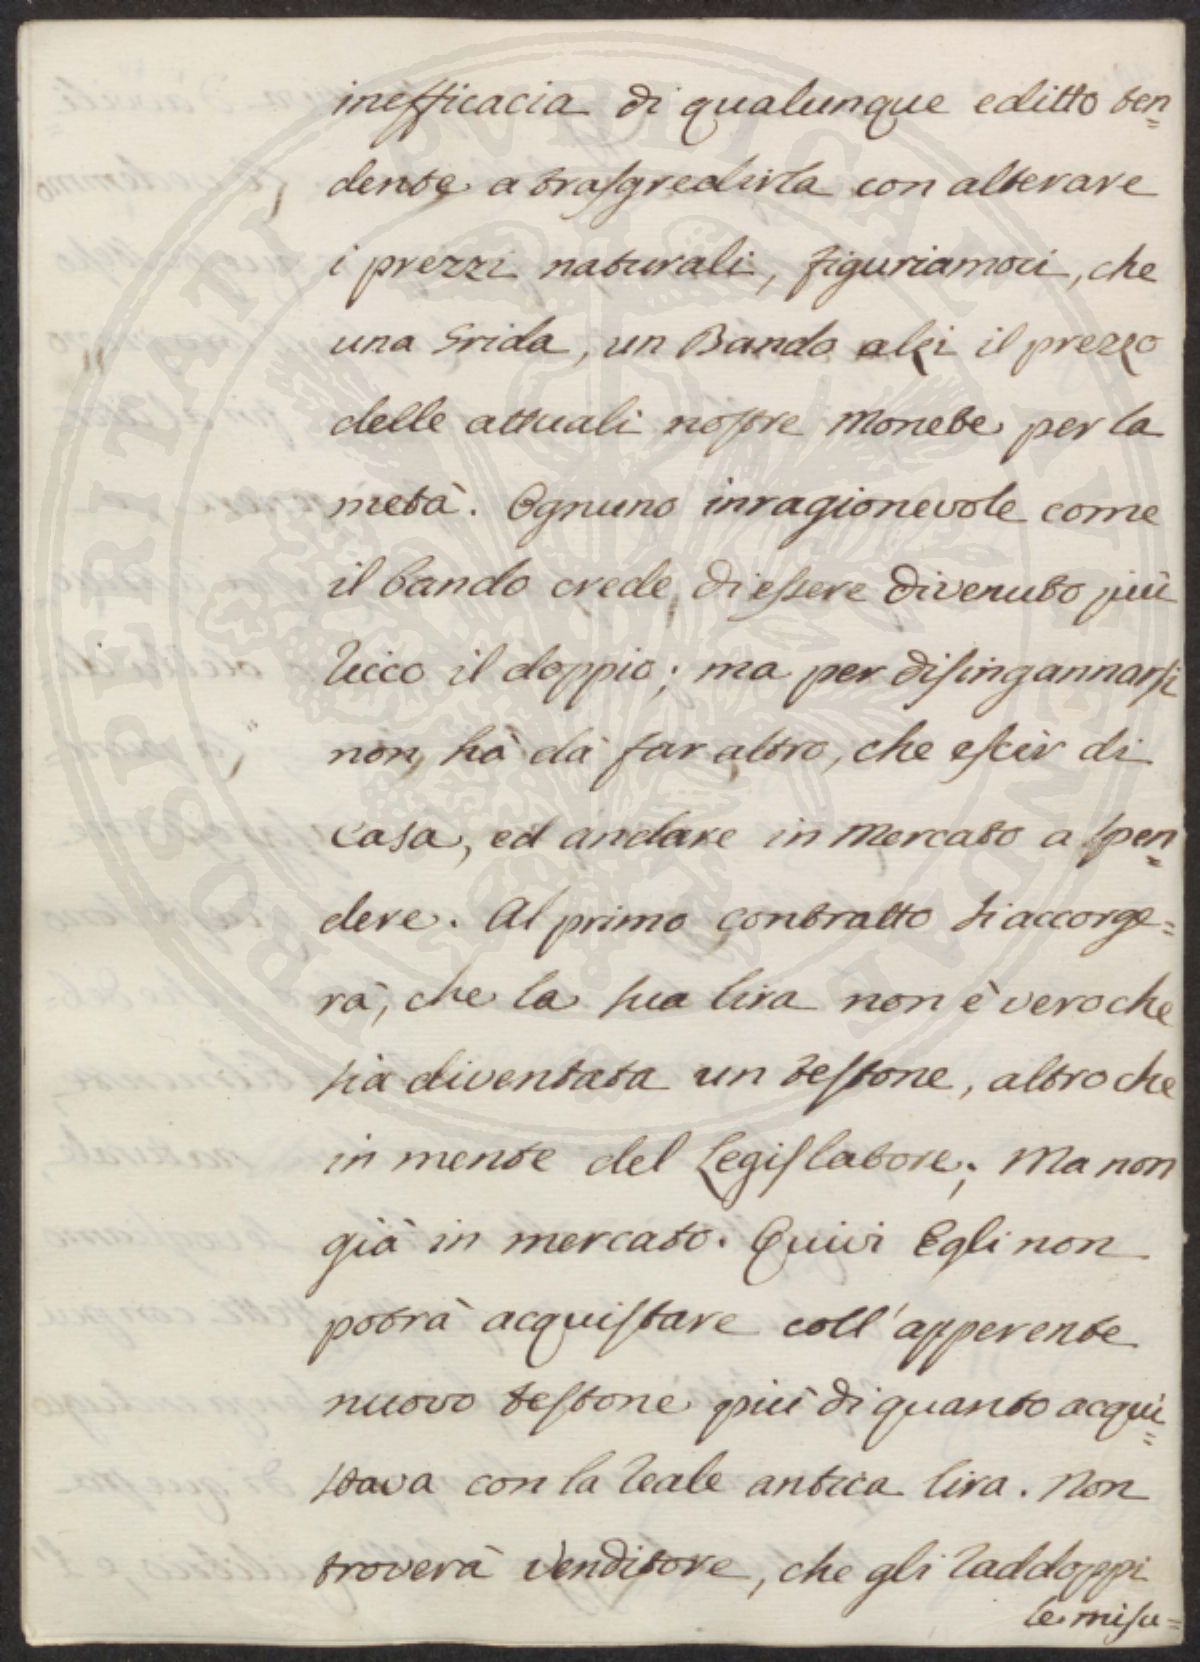 inefficacia di qualunque editto ten=
dente a trasgredirla con alterare
i prezzi naturali, figuriamoci, che
una Grida, un Bando alzi il prezzo
delle attuali nostre Monete per la
metà. Ognuno inragionevole come
il bando crede di essere divenuto più
ricco il doppio; ma per disingannarsi
non hà dà far altro, che escir di
Casa, ed andare in Mercato a spen=
dere. Al primo contratto si accorge=
rà, che la sua lira non è vero che
sia diventata un testone, altro che
in mente del Legislatore; Ma non
già in mercato. Quivi Egli non
potrà acquistare coll'apperente
nuovo testone più di quanto acqui=
stava con la reale antica lira. Non
troverà Venditore, che gli raddoppi
le misu=
PROSPERITATI PVBLICAE AVGENDAE